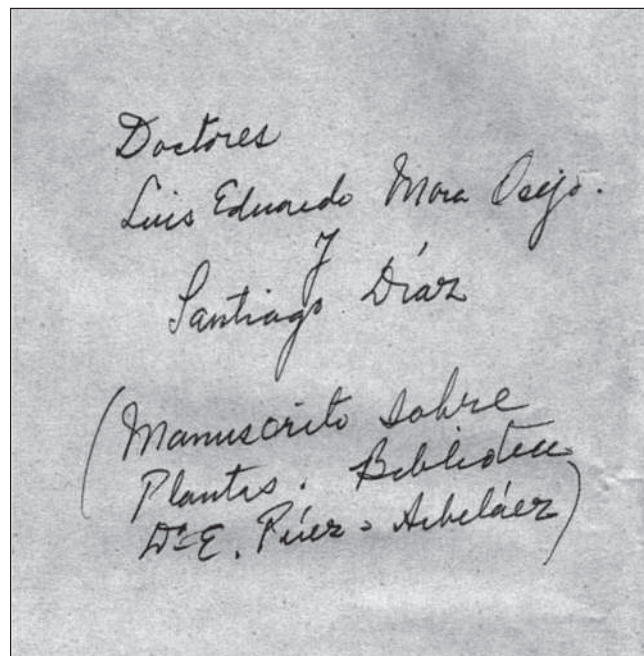 Doctores
Luis Eduardo Mora Osejo.
y
Santiago Díaz
(Manuscrito sobre
Plantas. Biblioteca
Dr. E. Pérez-Arbeláez)